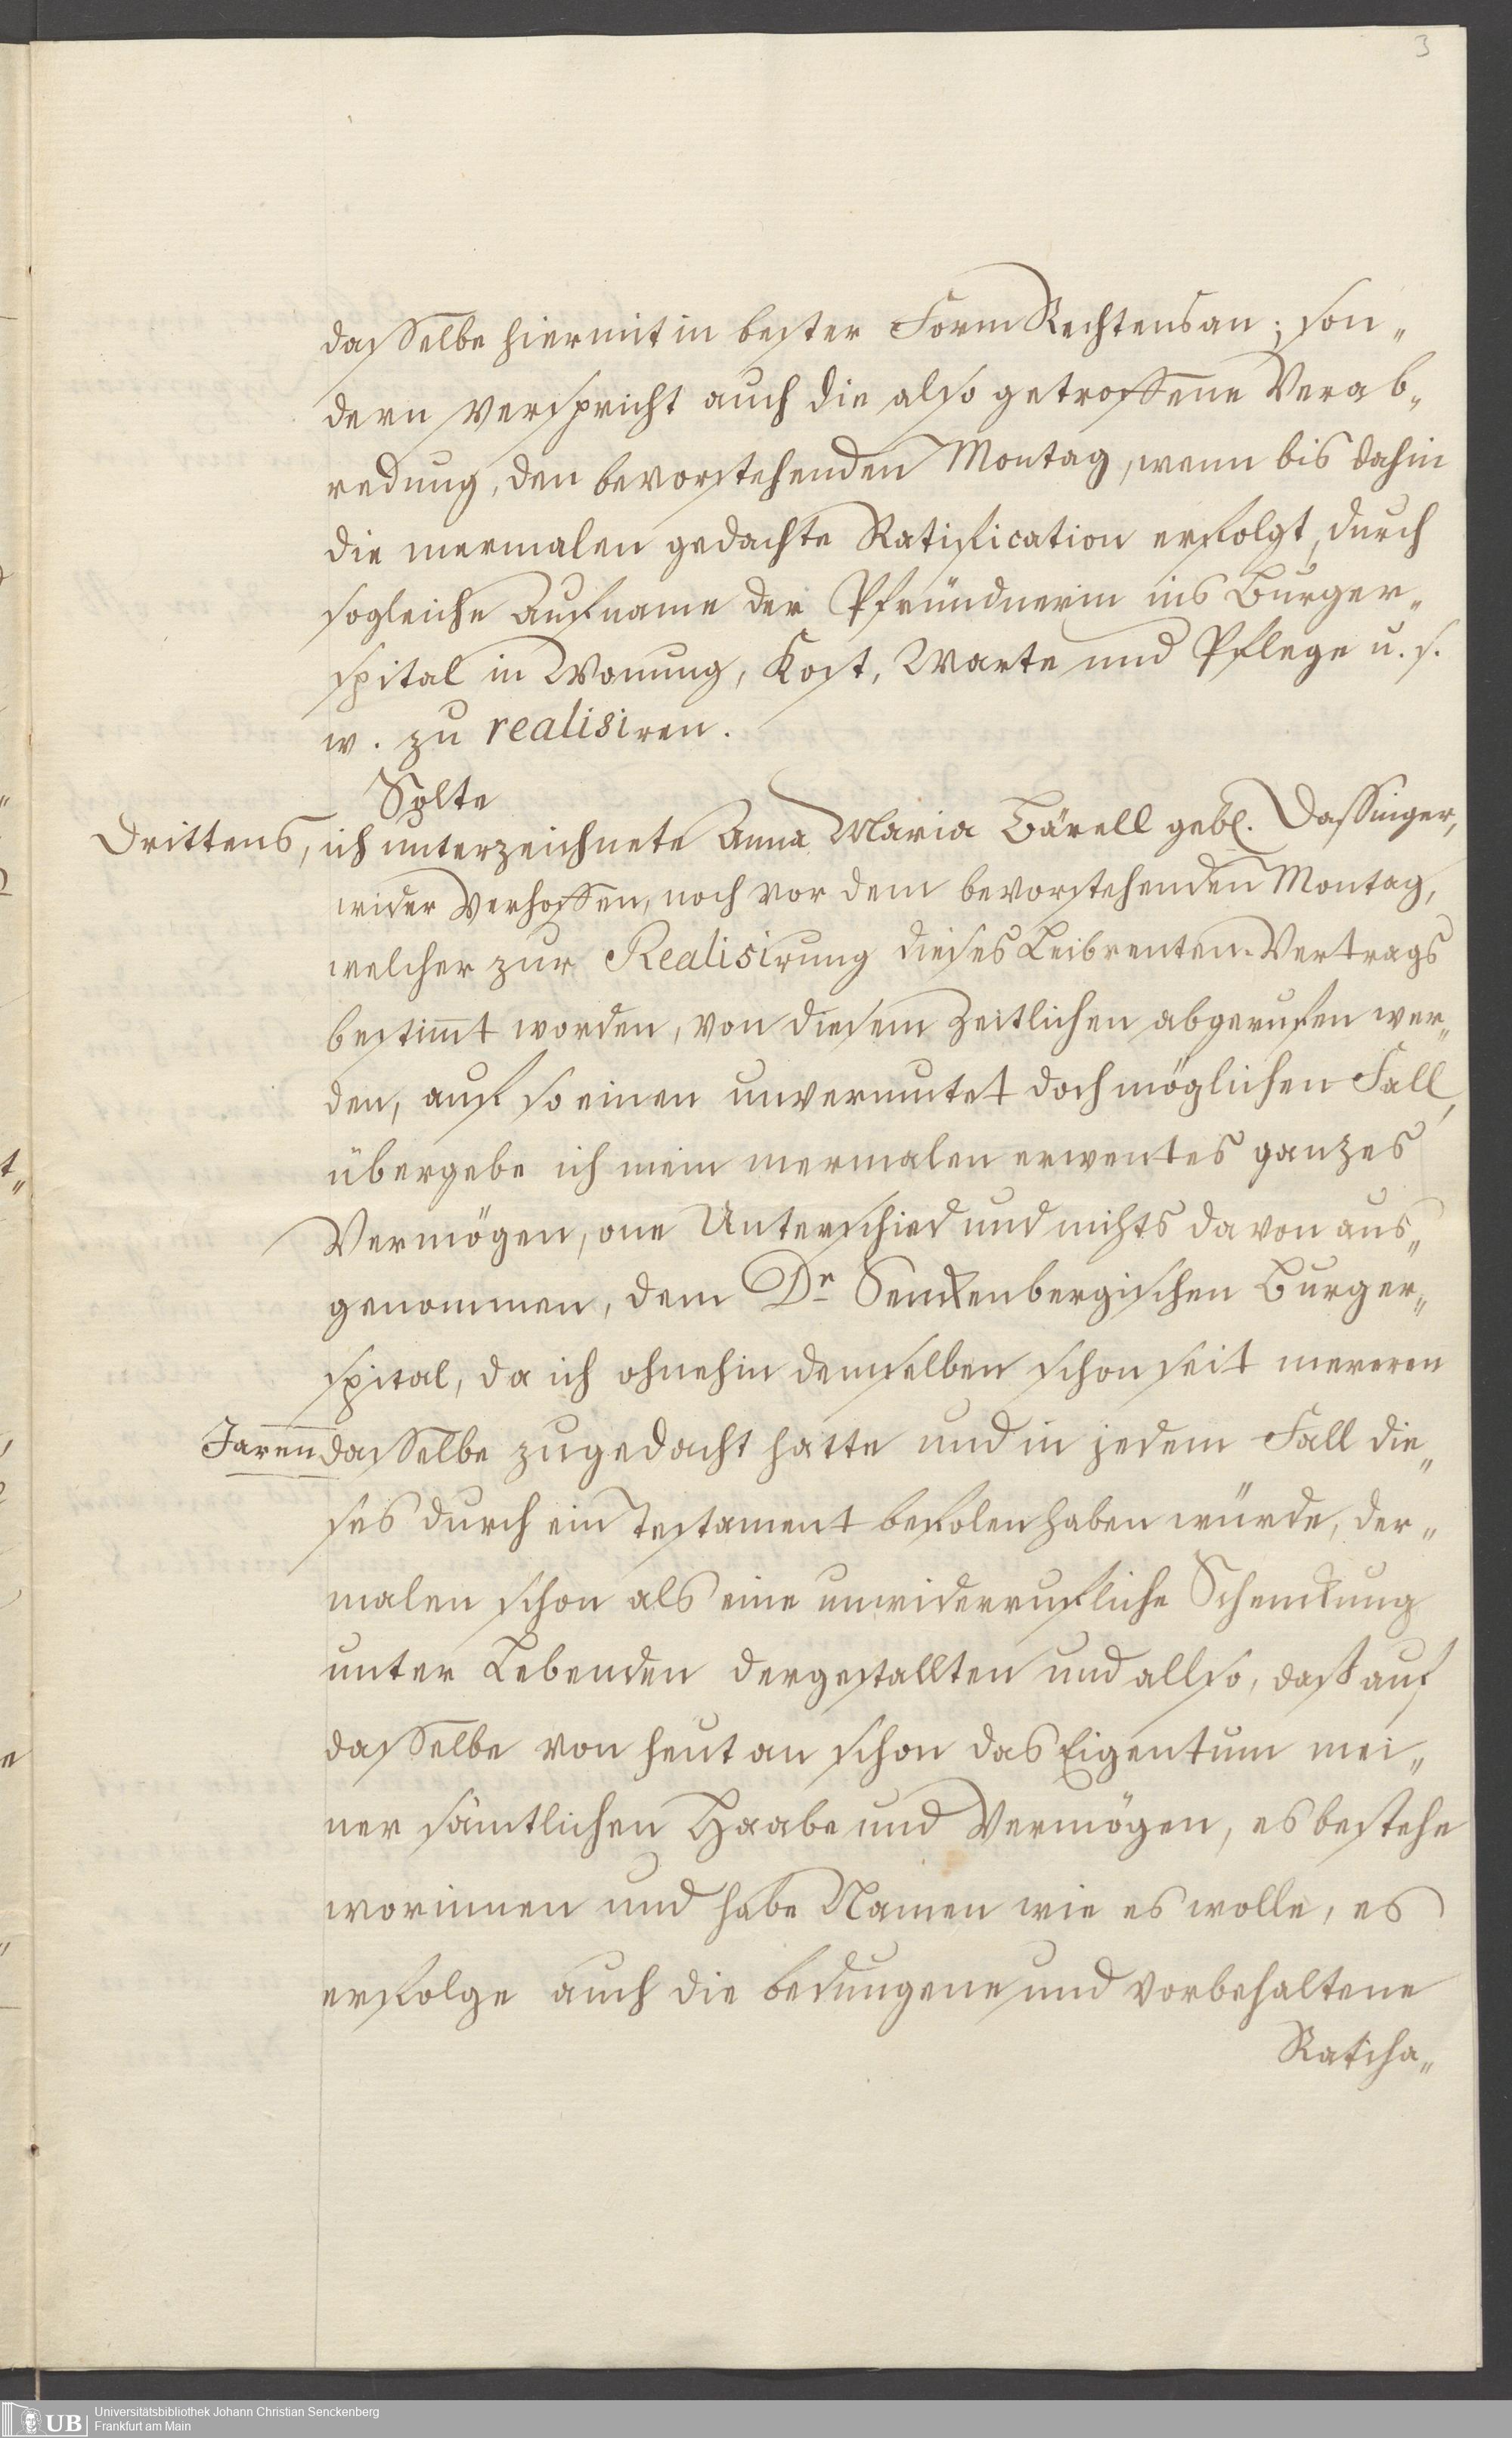 3
dasselbe hiermit in bester Form Rechtens an; son„
dern verspricht auch die also getroffene Verab„
redung, den bevorstehenden Montag, wenn bis dahin
die mermalen gedachte Ratification erfolgt, durch
sogleiche Aufname der Pfründnerin ins Burger„
spital in Wonung, Kost, Warte und Pflege u. s.
w. zu realisiren.
Solte
Drittens, ich unterzeichnete Anna Maria Bärell gebl. Dassinger,
wider Verhoffen, noch vor dem bevorstehenden Montag,
welcher zur Realisirung dieses Leibrenten-Vertrags
bestim̄t worden, von diesem Zeitlichen abgerufen wer„
den, auf so einen unvermutet doch möglichen Fall,
übergebe ich mein mermalen erwentes ganzes
Vermögen, one Unterschied und nichts davon aus„
genommen, dem Dr Senckenbergischen Burger„
spital, da ich ohnehin demselben schon seit mereren
Jaren dasselbe zugedacht hatte und in jedem Fall die„
ses durch ein Testament befolen haben würde, der„
malen schon als eine unwiderrufliche Schenckung
unter Lebenden dergestallten und allso, daß auf
dasselbe von heut an schon das Eigentum mei„
ner sämtlichen Haabe und Vermögen, es bestehe
worinnen und habe Namen wie es wolle, es
erfolge auch die bedungene und vorbehaltene
Ratiha„
UB
Universitätsbibliothek Johann Christian Senckenberg
Frankfurt am Main